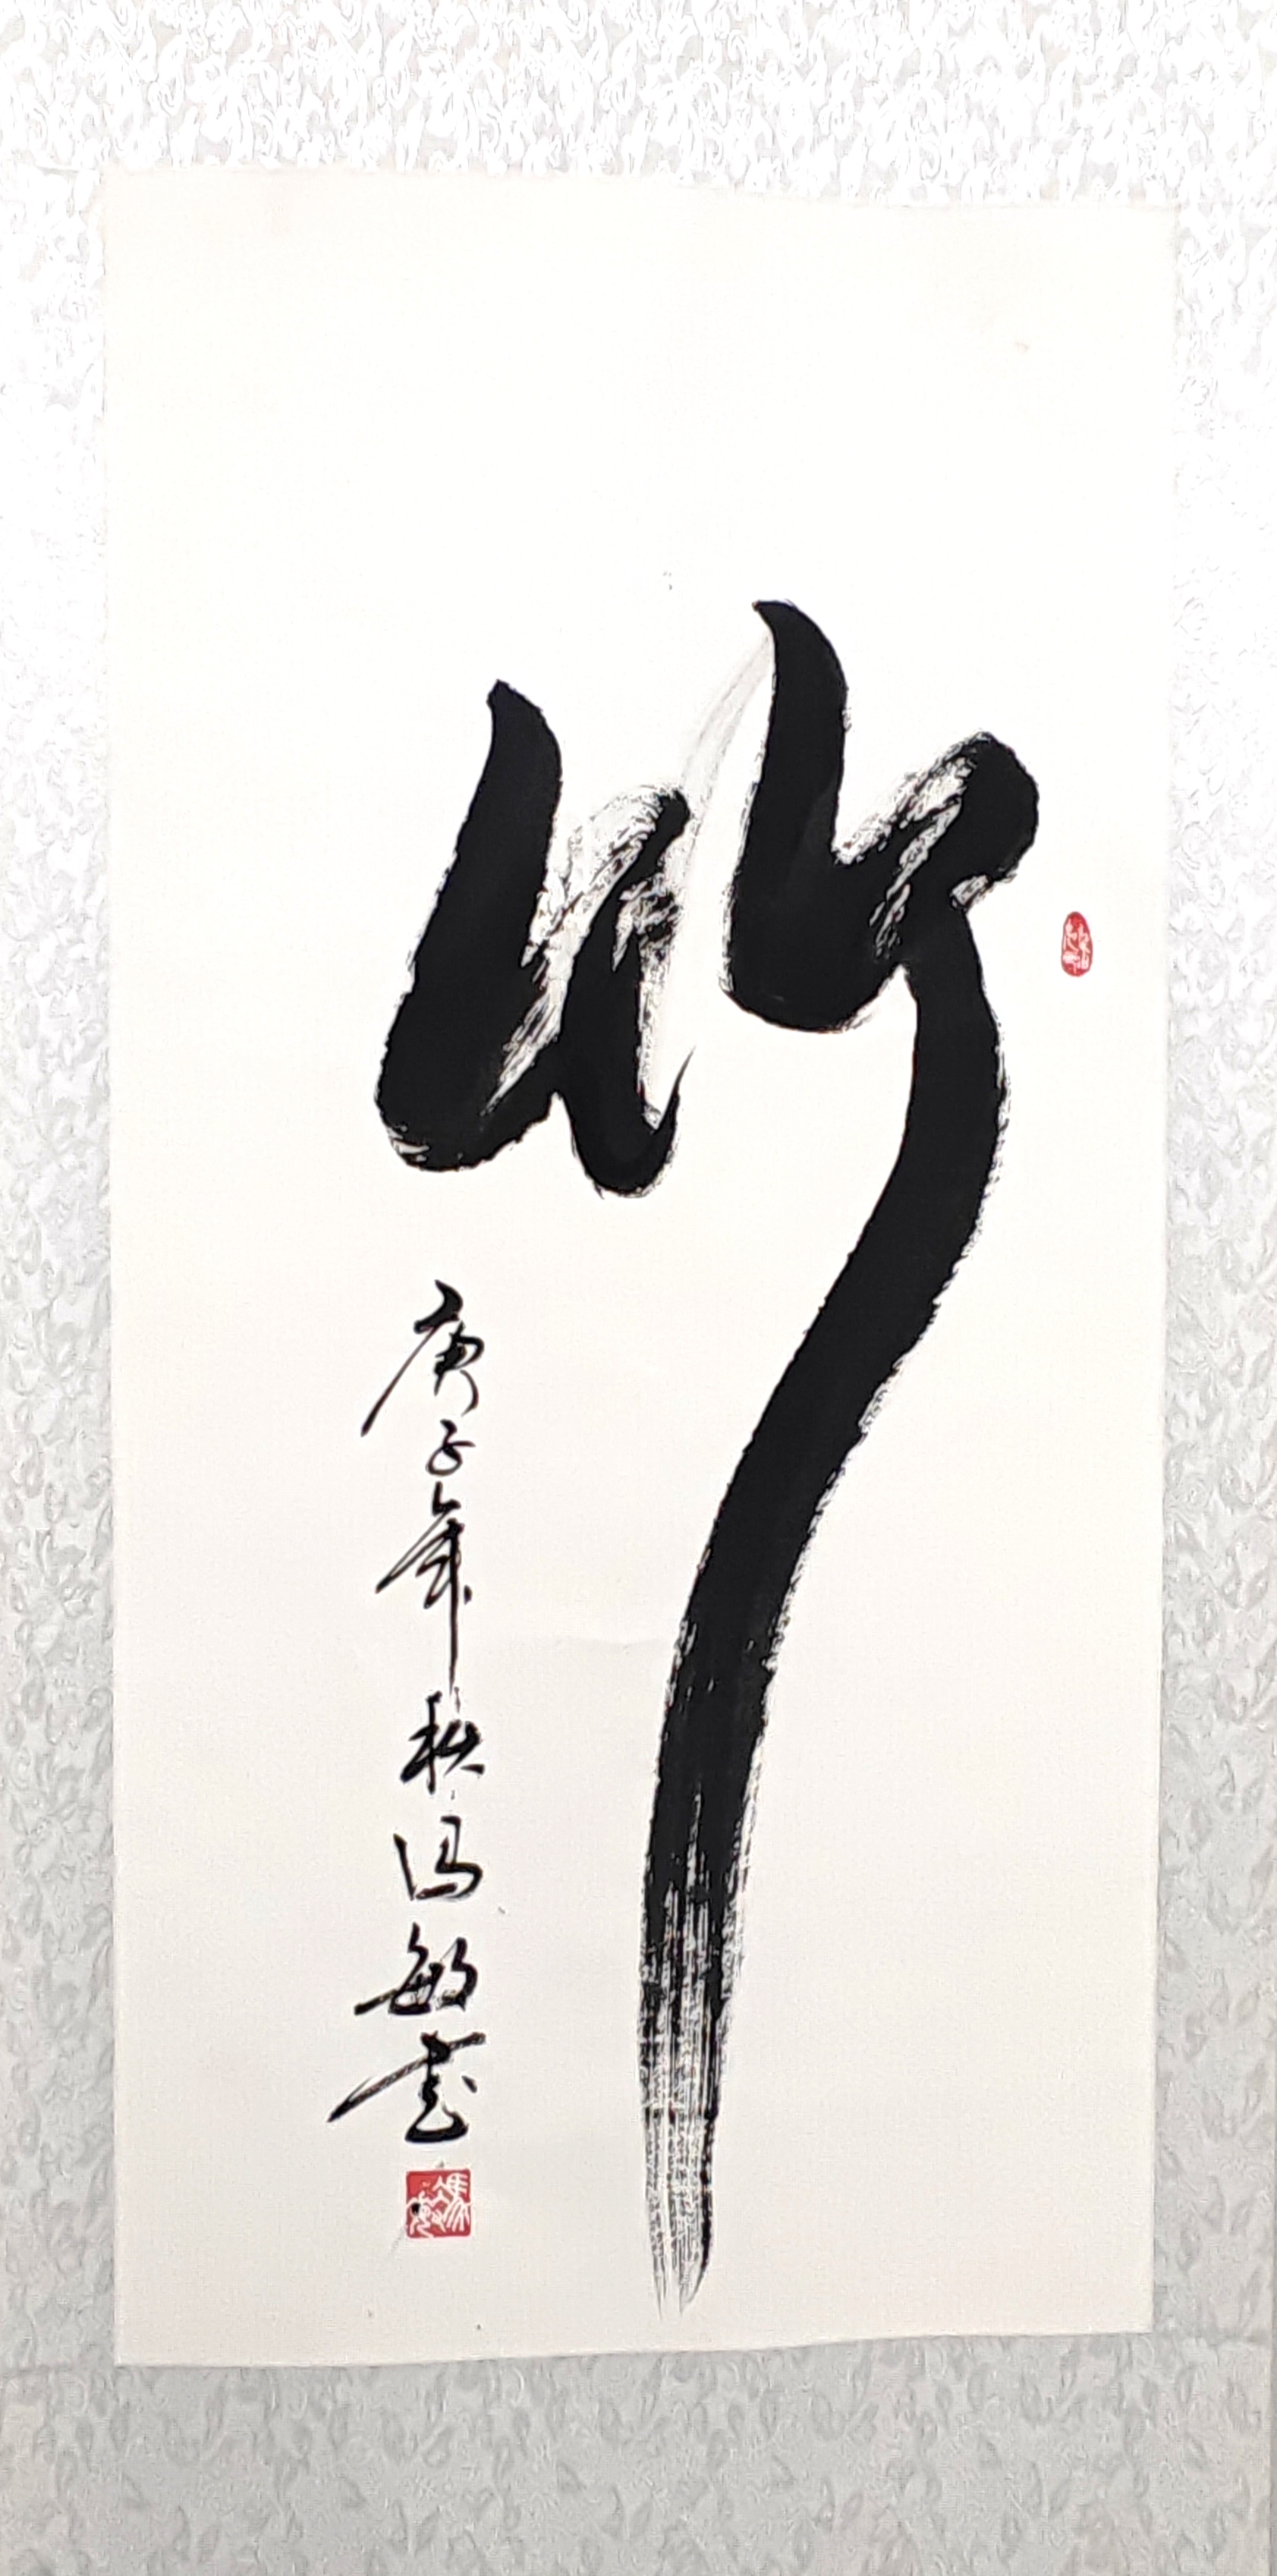 竹
庚子年秋冯敏书
馮敏